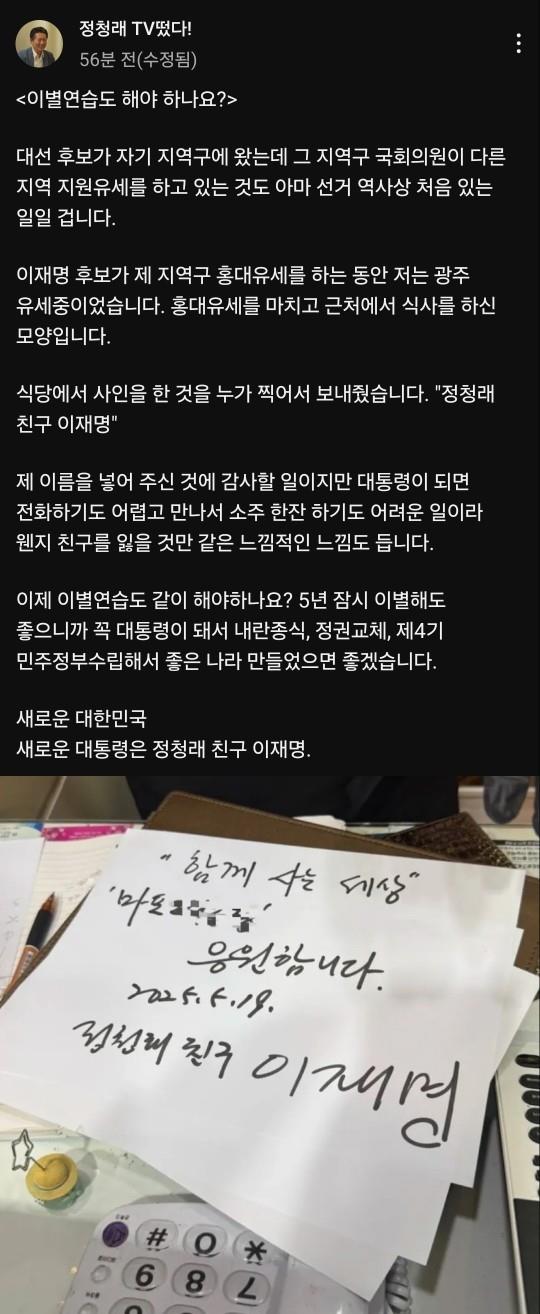 정청래 TV떴다!
56분 전(수정됨)
<이별연습도 해야 하나요?>
대선 후보가 자기 지역구에 왔는데 그 지역구 국회의원이 다른
지역 지원유세를 하고 있는 것도 아마 선거 역사상 처음 있는
일일 겁니다.
이재명 후보가 제 지역구 홍대유세를 하는 동안 저는 광주
유세중이었습니다. 홍대유세를 마치고 근처에서 식사를 하신
모양입니다.
식당에서 사인을 한 것을 누가 찍어서 보내줬습니다. "정청래
친구 이재명"
제 이름을 넣어 주신 것에 감사할 일이지만 대통령이 되면
전화하기도 어렵고 만나서 소주 한잔 하기도 어려운 일이라
웬지 친구를 잃을 것만 같은 느낌적인 느낌도 듭니다.
이제 이별연습도 같이 해야하나요? 5년 잠시 이별해도
좋으니까 꼭 대통령이 돼서 내란종식, 정권교체, 제4기
민주정부수립해서 좋은 나라 만들었으면 좋겠습니다.
새로운 대한민국
새로운 대통령은 정청래 친구 이재명.
"함께 사는 세상"
'마포
응원합니다.
2025. 5. 19.
정청래 친구 이재명
# 0 *
9 8 7